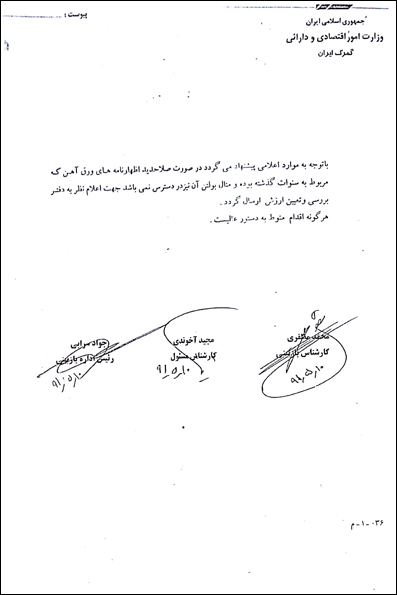 پیوست :
جمهوری اسلامی ایران
وزارت امور اقتصادی و دارائی
گمرک ایران
باتوجه به موارد اعلامی پیشنهاد می گردد در صورت صلاحدید اظهارنامه های ورق آهن که
مربوط به سنوات گذشته بوده و مثال بولتن آن نیز در دسترس نمی باشد جهت اعلام نظر به دفتر
بررسی و تعیین ارزش ارسال گردد .
هرگونه اقدام منوط به دستور عالیست .
محمد مظفری
کارشناس بازبینی
۹۱,۵,۱۰
مجید آخوندی
کارشناس مسئول
۹۱,۵,۱۰
جواد سرایی
رئیس اداره بازبینی
۹۱,۵,۱۰
۰۳۶-۱-م